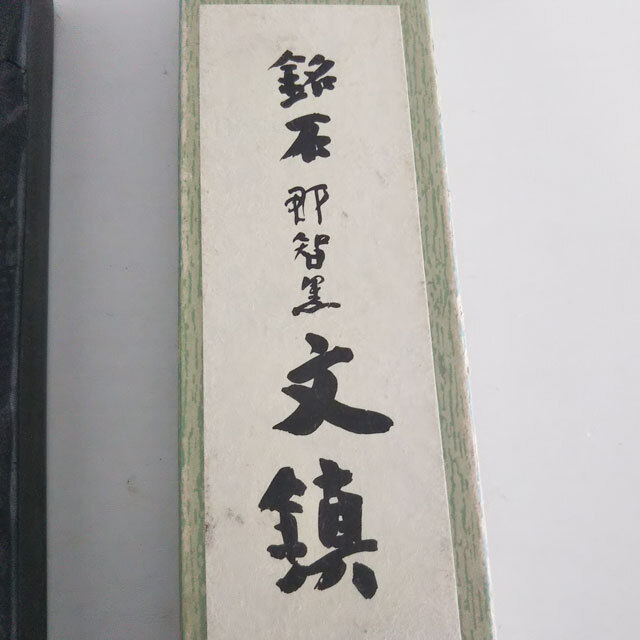 銘石那智黒文鎮